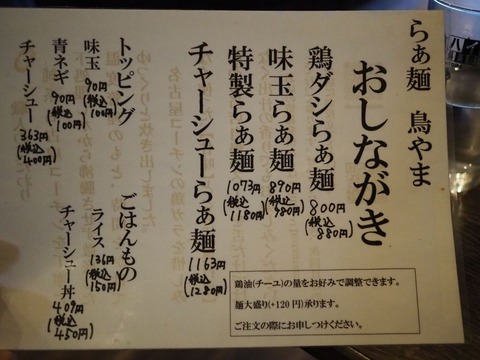 らぁ麺 鳥やま
おしながき
鶏ダシらぁ麺 800円
(税込880円)
味玉らぁ麺 890円
(税込980円)
特製らぁ麺 1073円
(税込1180円)
チャーシューらぁ麺 1163円
(税込1280円)
トッピング
味玉 90円
(税込100円)
青ネギ 90円
(税込100円)
チャーシュー 363円
(税込400円)
ごはんもの
ライス 136円
(税込150円)
チャーシュー丼 409円
(税込450円)
鶏油(チーユ)の量をお好みで調整できます。
麺大盛り(+120円)承ります。
ご注文の際にお申しつけください。